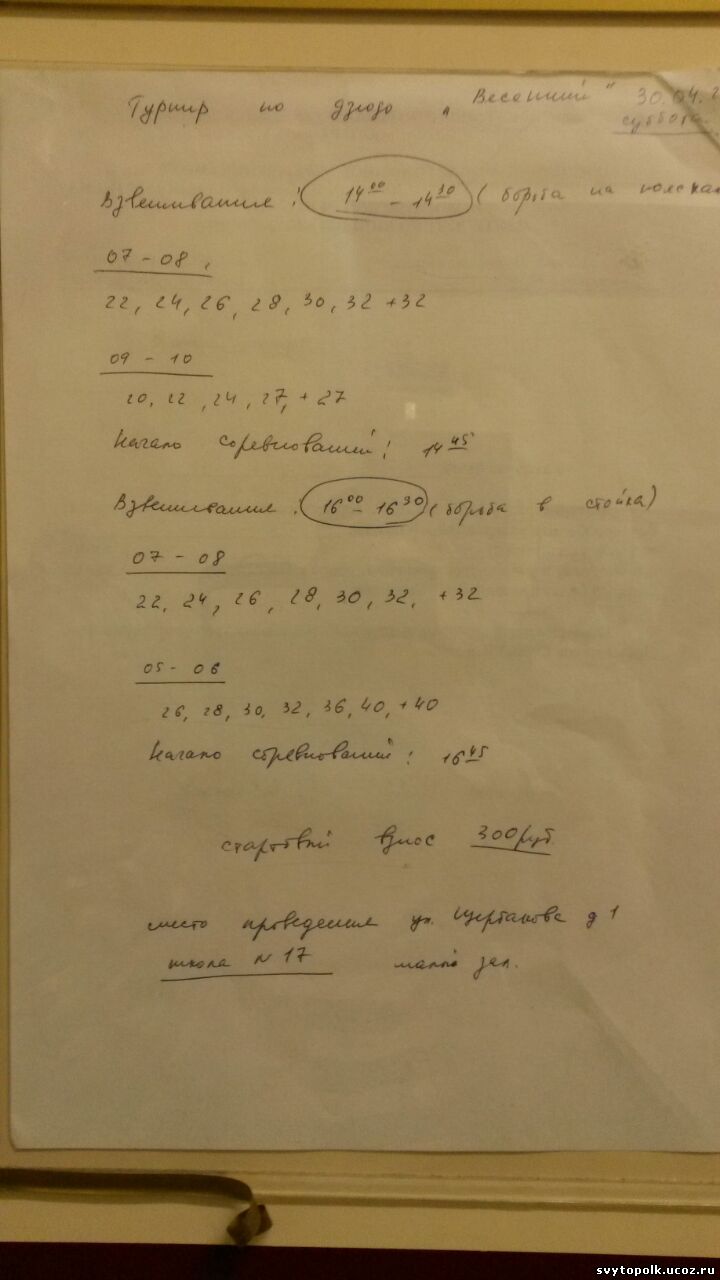 Турнир по дзюдо „Весенний" 30.04.2
суббота
Взвешивание: 14⁰⁰ - 14³⁰ (борьба на поясах
07 - 08
22, 24, 26, 28, 30, 32 +32
09 - 10
20, 22, 24, 27, +27
Начало соревнований: 14⁴⁵
Взвешивание: 16⁰⁰ - 16³⁰ (борьба в стойке)
07 - 08
22, 24, 26, 28, 30, 32, +32
05 - 06
26, 28, 30, 32, 36, 40, +40
Начало соревнований: 16⁴⁵
стартовый взнос 300 руб
место проведения ул. Щербакова д 1
школа N 17 малый зал.
svytopolk.ucoz.ru